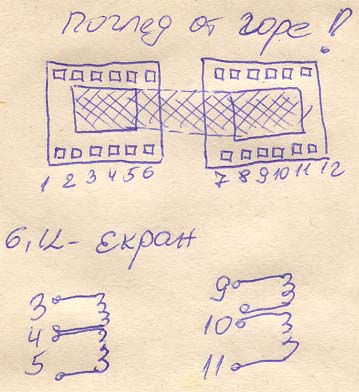 Поглед от горе!
1 2 3 4 5 6 7 8 9 10 11 12
6,12 - екран
3 9
4 10
5 11